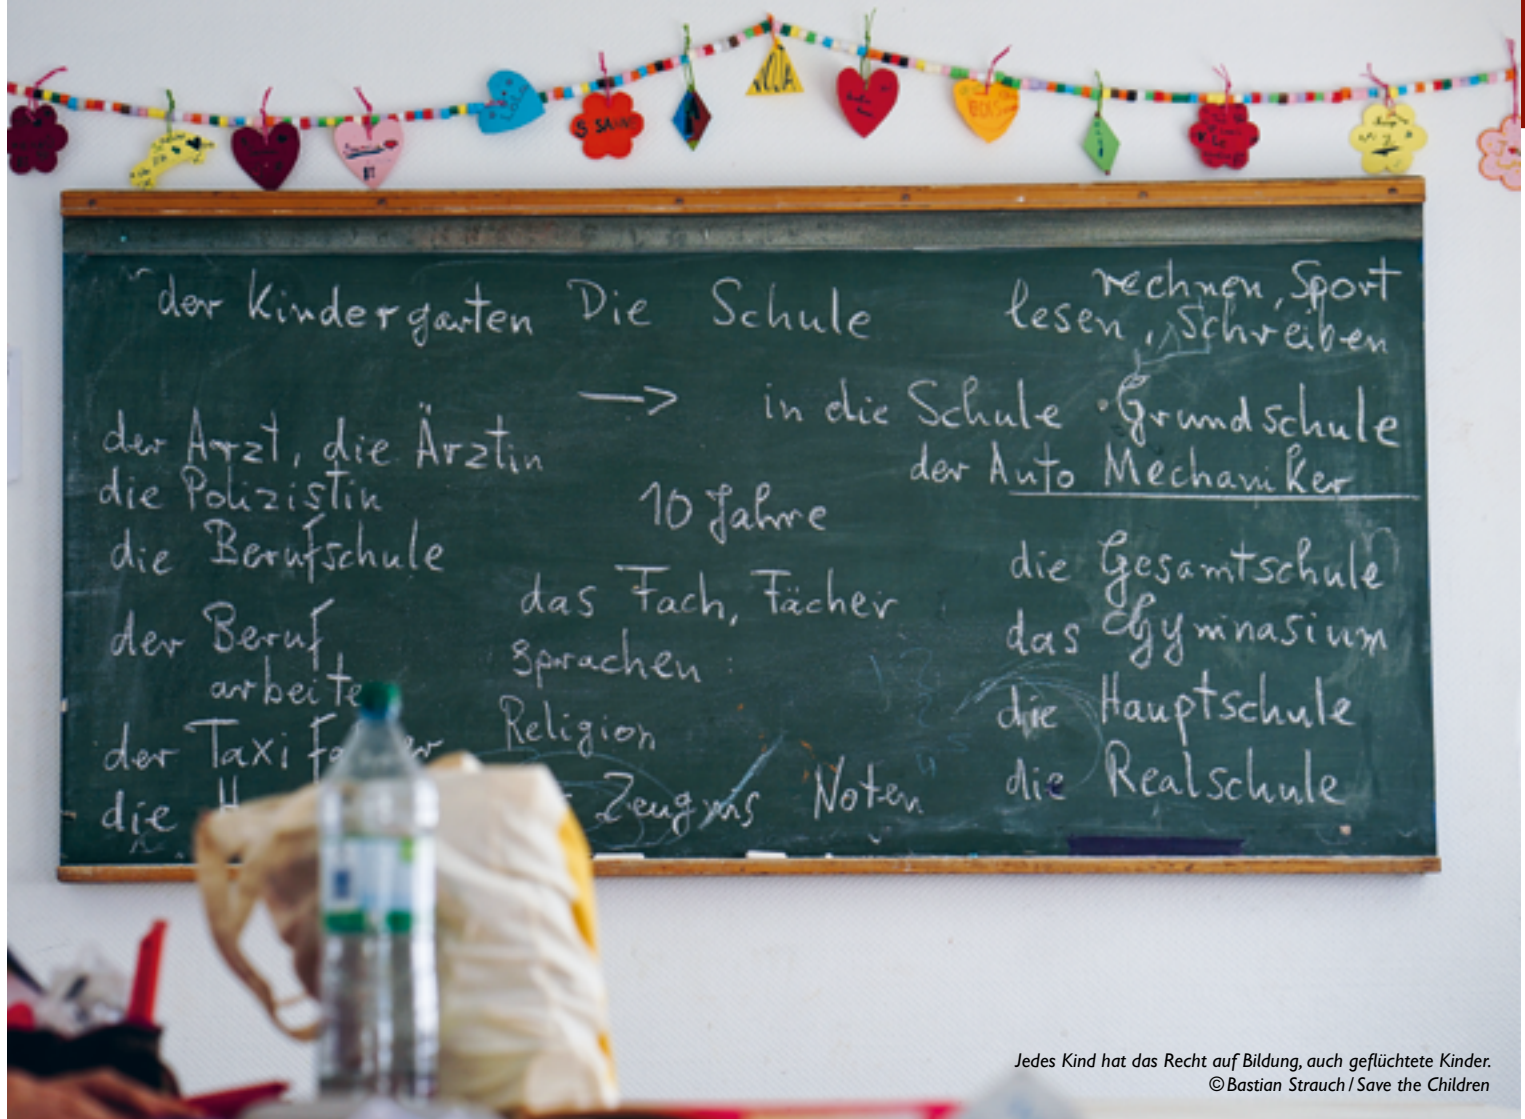 LOLA
S SAM
der Kindergarten Die Schule
rechnen, Sport
lesen, Schreiben
→ in die Schule • Grundschule
der Arzt, die Ärztin
die Polizistin
die Berufschule
der Beruf
arbeite
der Taxi
die H
10 Jahre
das Fach, Fächer
Sprachen:
Religion
Zeugnis Noten
der Auto Mechaniker
die Gesamtschule
das Gymnasium
die Hauptschule
die Realschule
Jedes Kind hat das Recht auf Bildung, auch geflüchtete Kinder.
© Bastian Strauch / Save the Children